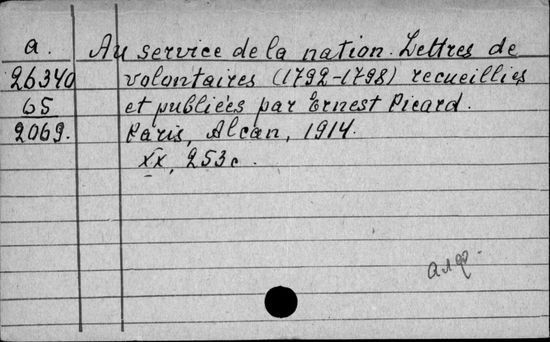 a. Au service de la nation. Lettres de
26340 volontaires (1792-1798) recueillies
65 et publiées par Ernest Picard.
2069. Paris, Alcan, 1914.
XX, 253 c.